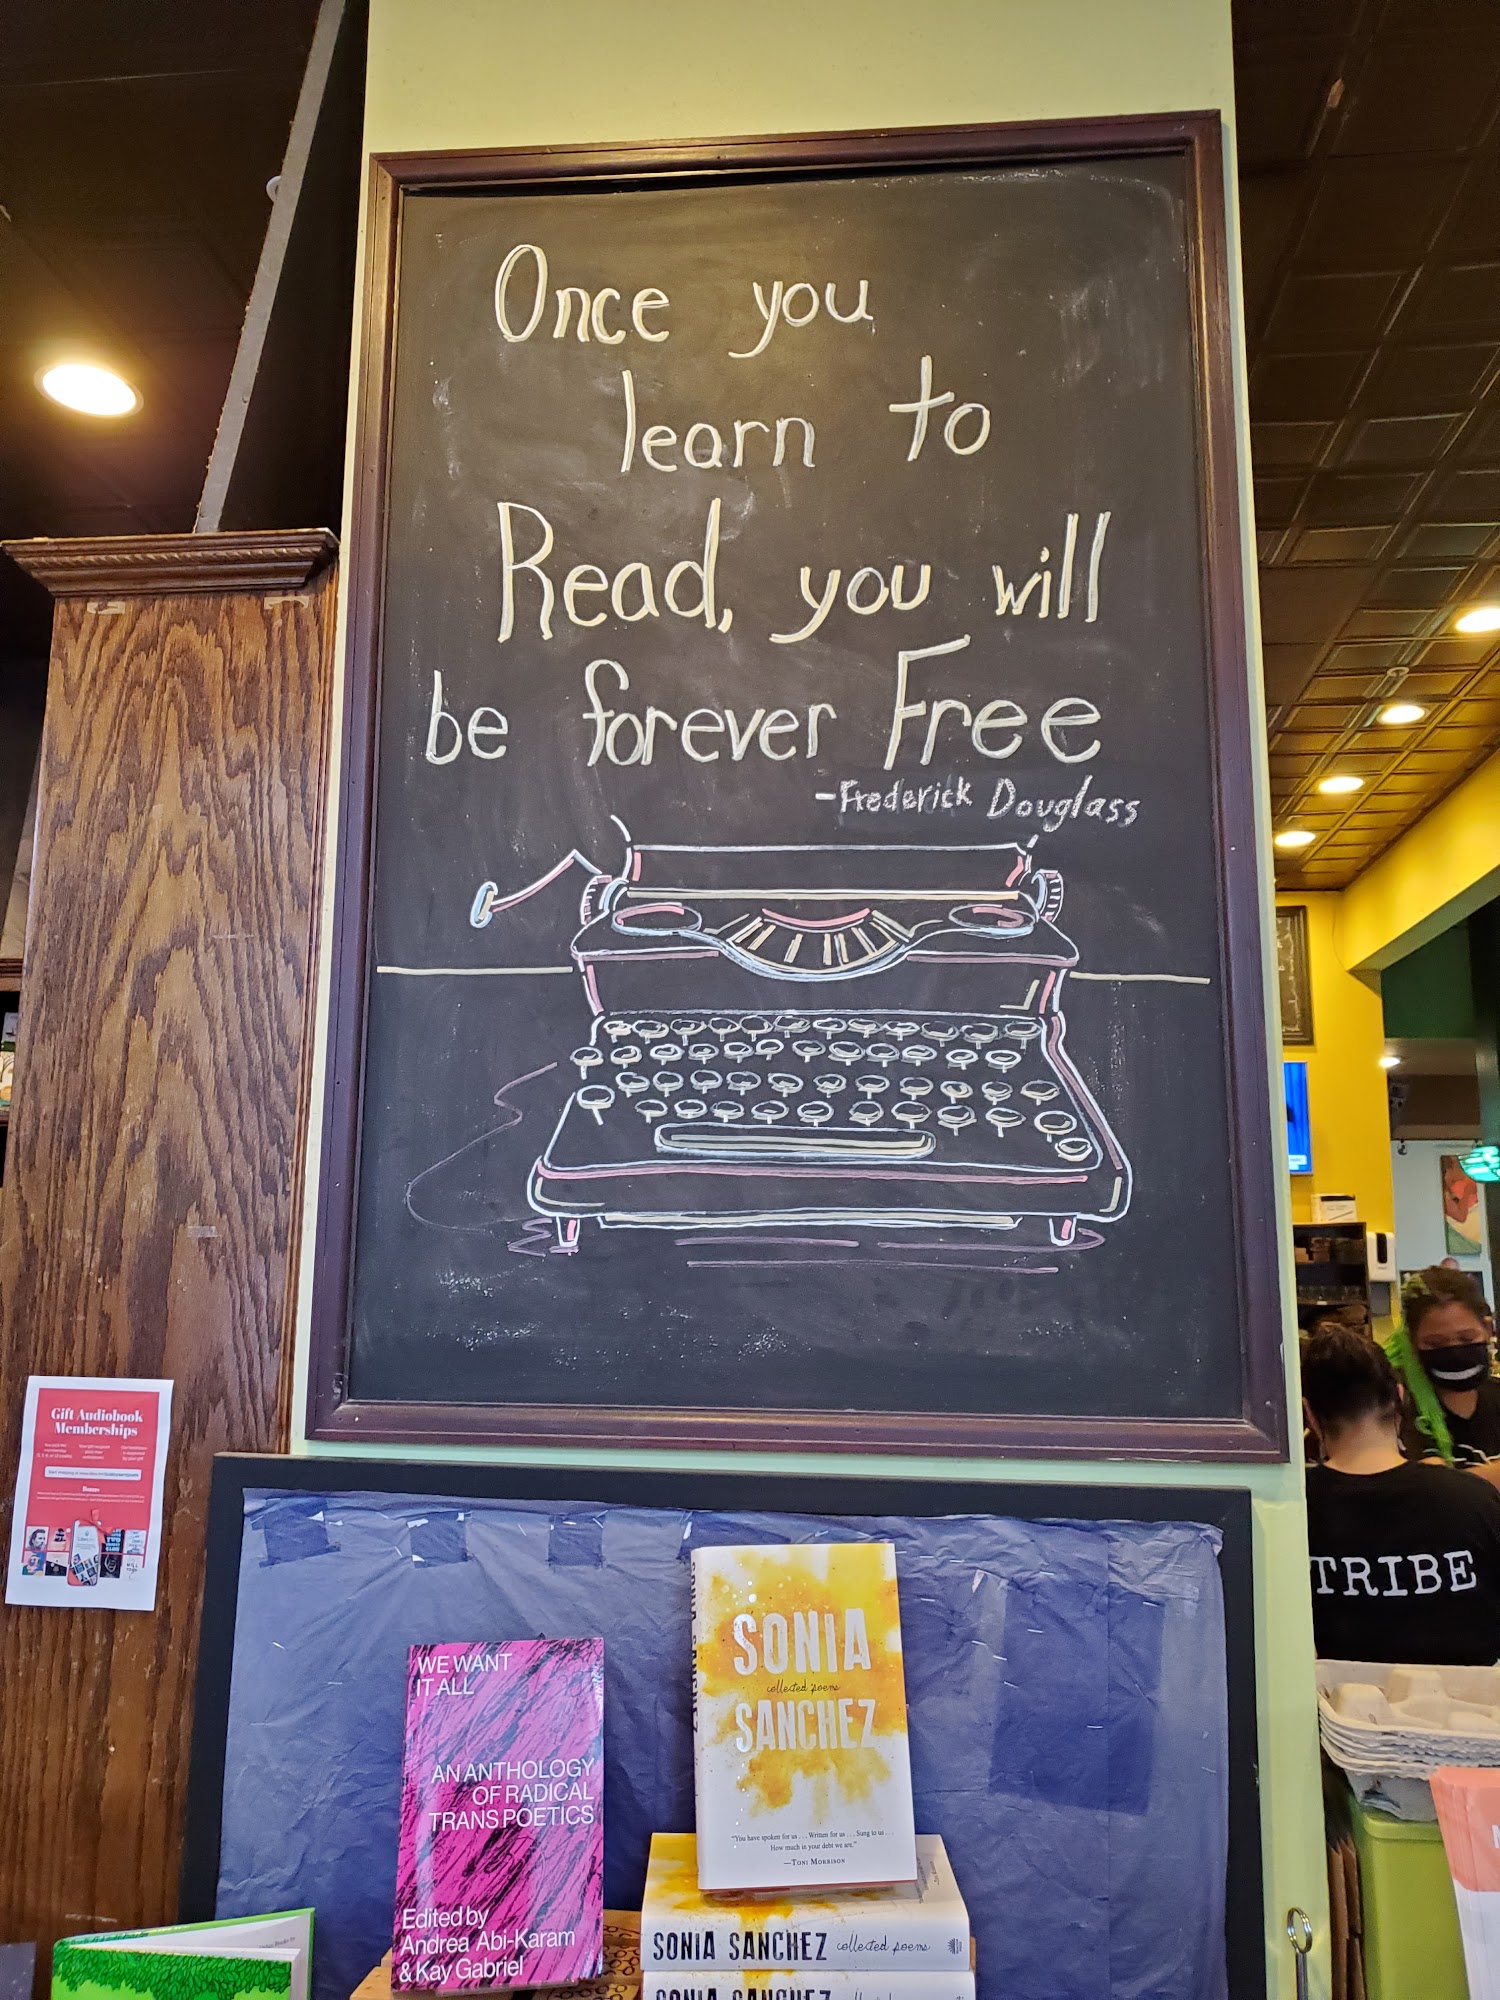 Once you
learn to
Read, you will
be forever Free
-Frederick Douglass
Gift Audiobook
Memberships
Bonus
TRIBE
WE WANT
IT ALL
AN ANTHOLOGY
OF RADICAL
TRANS POETICS
Edited by
Andrea Abi-Karam
& Kay Gabriel
SONIA
collected poems
SANCHEZ
"You have spoken for us . . . Written for us . . . Sung to us . . .
How much in your debt we are."
—TONI MORRISON
SONIA SANCHEZ collected poems
SONIA SANCHEZ collected poems